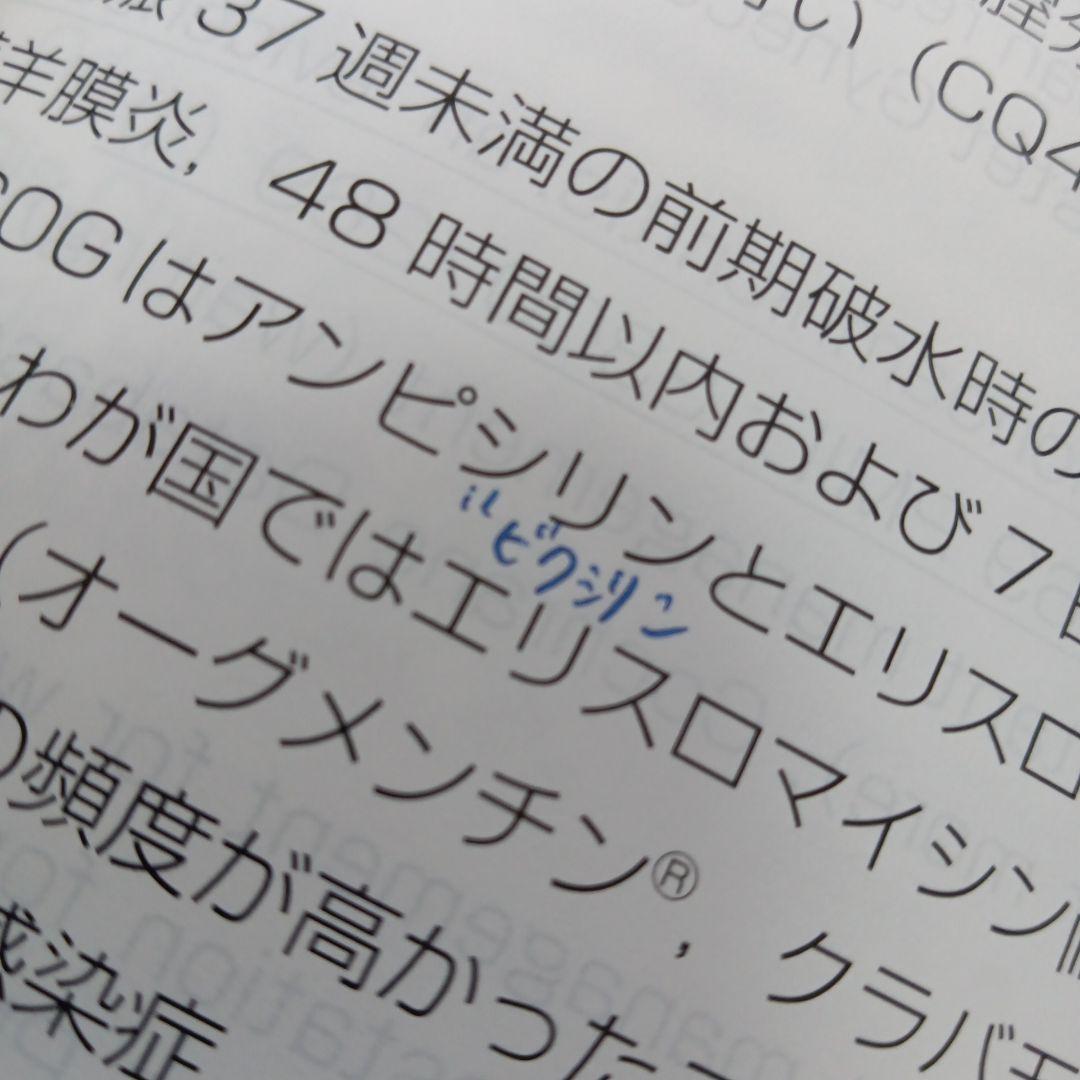 い（CQ4
37週未満の前期破水時の
羊膜炎，48時間以内および7日
COGはアンピシリンとエリスロ
〃ビクシリン
わが国ではエリスロマイシン
（オーグメンチン®，クラバモ
の頻度が高かった
感染症